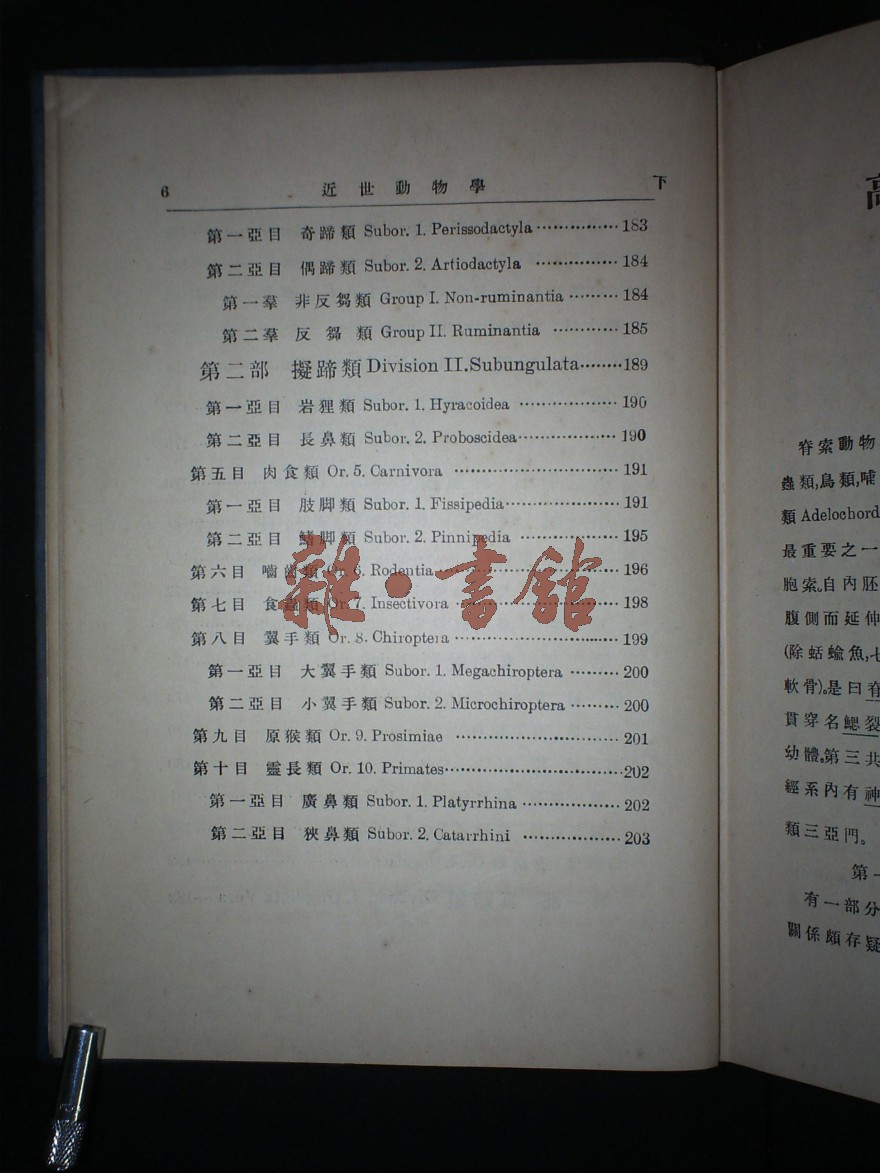 6 近世動物學 下
第一亞目 奇蹄類 Subor. 1. Perissodactyla ················ 183
第二亞目 偶蹄類 Subor. 2. Artiodactyla ················ 184
第一羣 非反芻類 Group I. Non-ruminantia ········· 184
第二羣 反芻類 Group II. Ruminantia ············ 185
第二部 擬蹄類 Division II. Subungulata ········ 189
第一亞目 岩狸類 Subor. 1. Hyracoidea ·················· 190
第二亞目 長鼻類 Subor. 2. Proboscidea ················· 190
第五目 肉食類 Or. 5. Carnivora ······························ 191
第一亞目 肢脚類 Subor. 1. Fissipedia ····················· 191
第二亞目 鰭脚類 Subor. 2. Pinnipedia ·················· 195
第六目 嚙齒類 Or. 6. Rodentia ································ 196
第七目 食蟲類 Or. 7. Insectivora ····························· 198
第八目 翼手類 Or. 8. Chiroptera ······························ 199
第一亞目 大翼手類 Subor. 1. Megachiroptera ········· 200
第二亞目 小翼手類 Subor. 2. Microchiroptera ········· 200
第九目 原猴類 Or. 9. Prosimiae ······························ 201
第十目 靈長類 Or. 10. Primates ································ 202
第一亞目 廣鼻類 Subor. 1. Platyrrhina ·················· 202
第二亞目 狹鼻類 Subor. 2. Catarrhini ·················· 203
雜·書館
脊索動物
蟲類,鳥類,哺
類 Adelochord
最重要之一
胞索。自內胚
腹側而延伸
(除蛞蝓魚,七
軟骨)。是曰脊
貫穿名鰓裂
幼體。第三共
經系內有神
類三亞門。
第一
有一部分
關係頗存疑